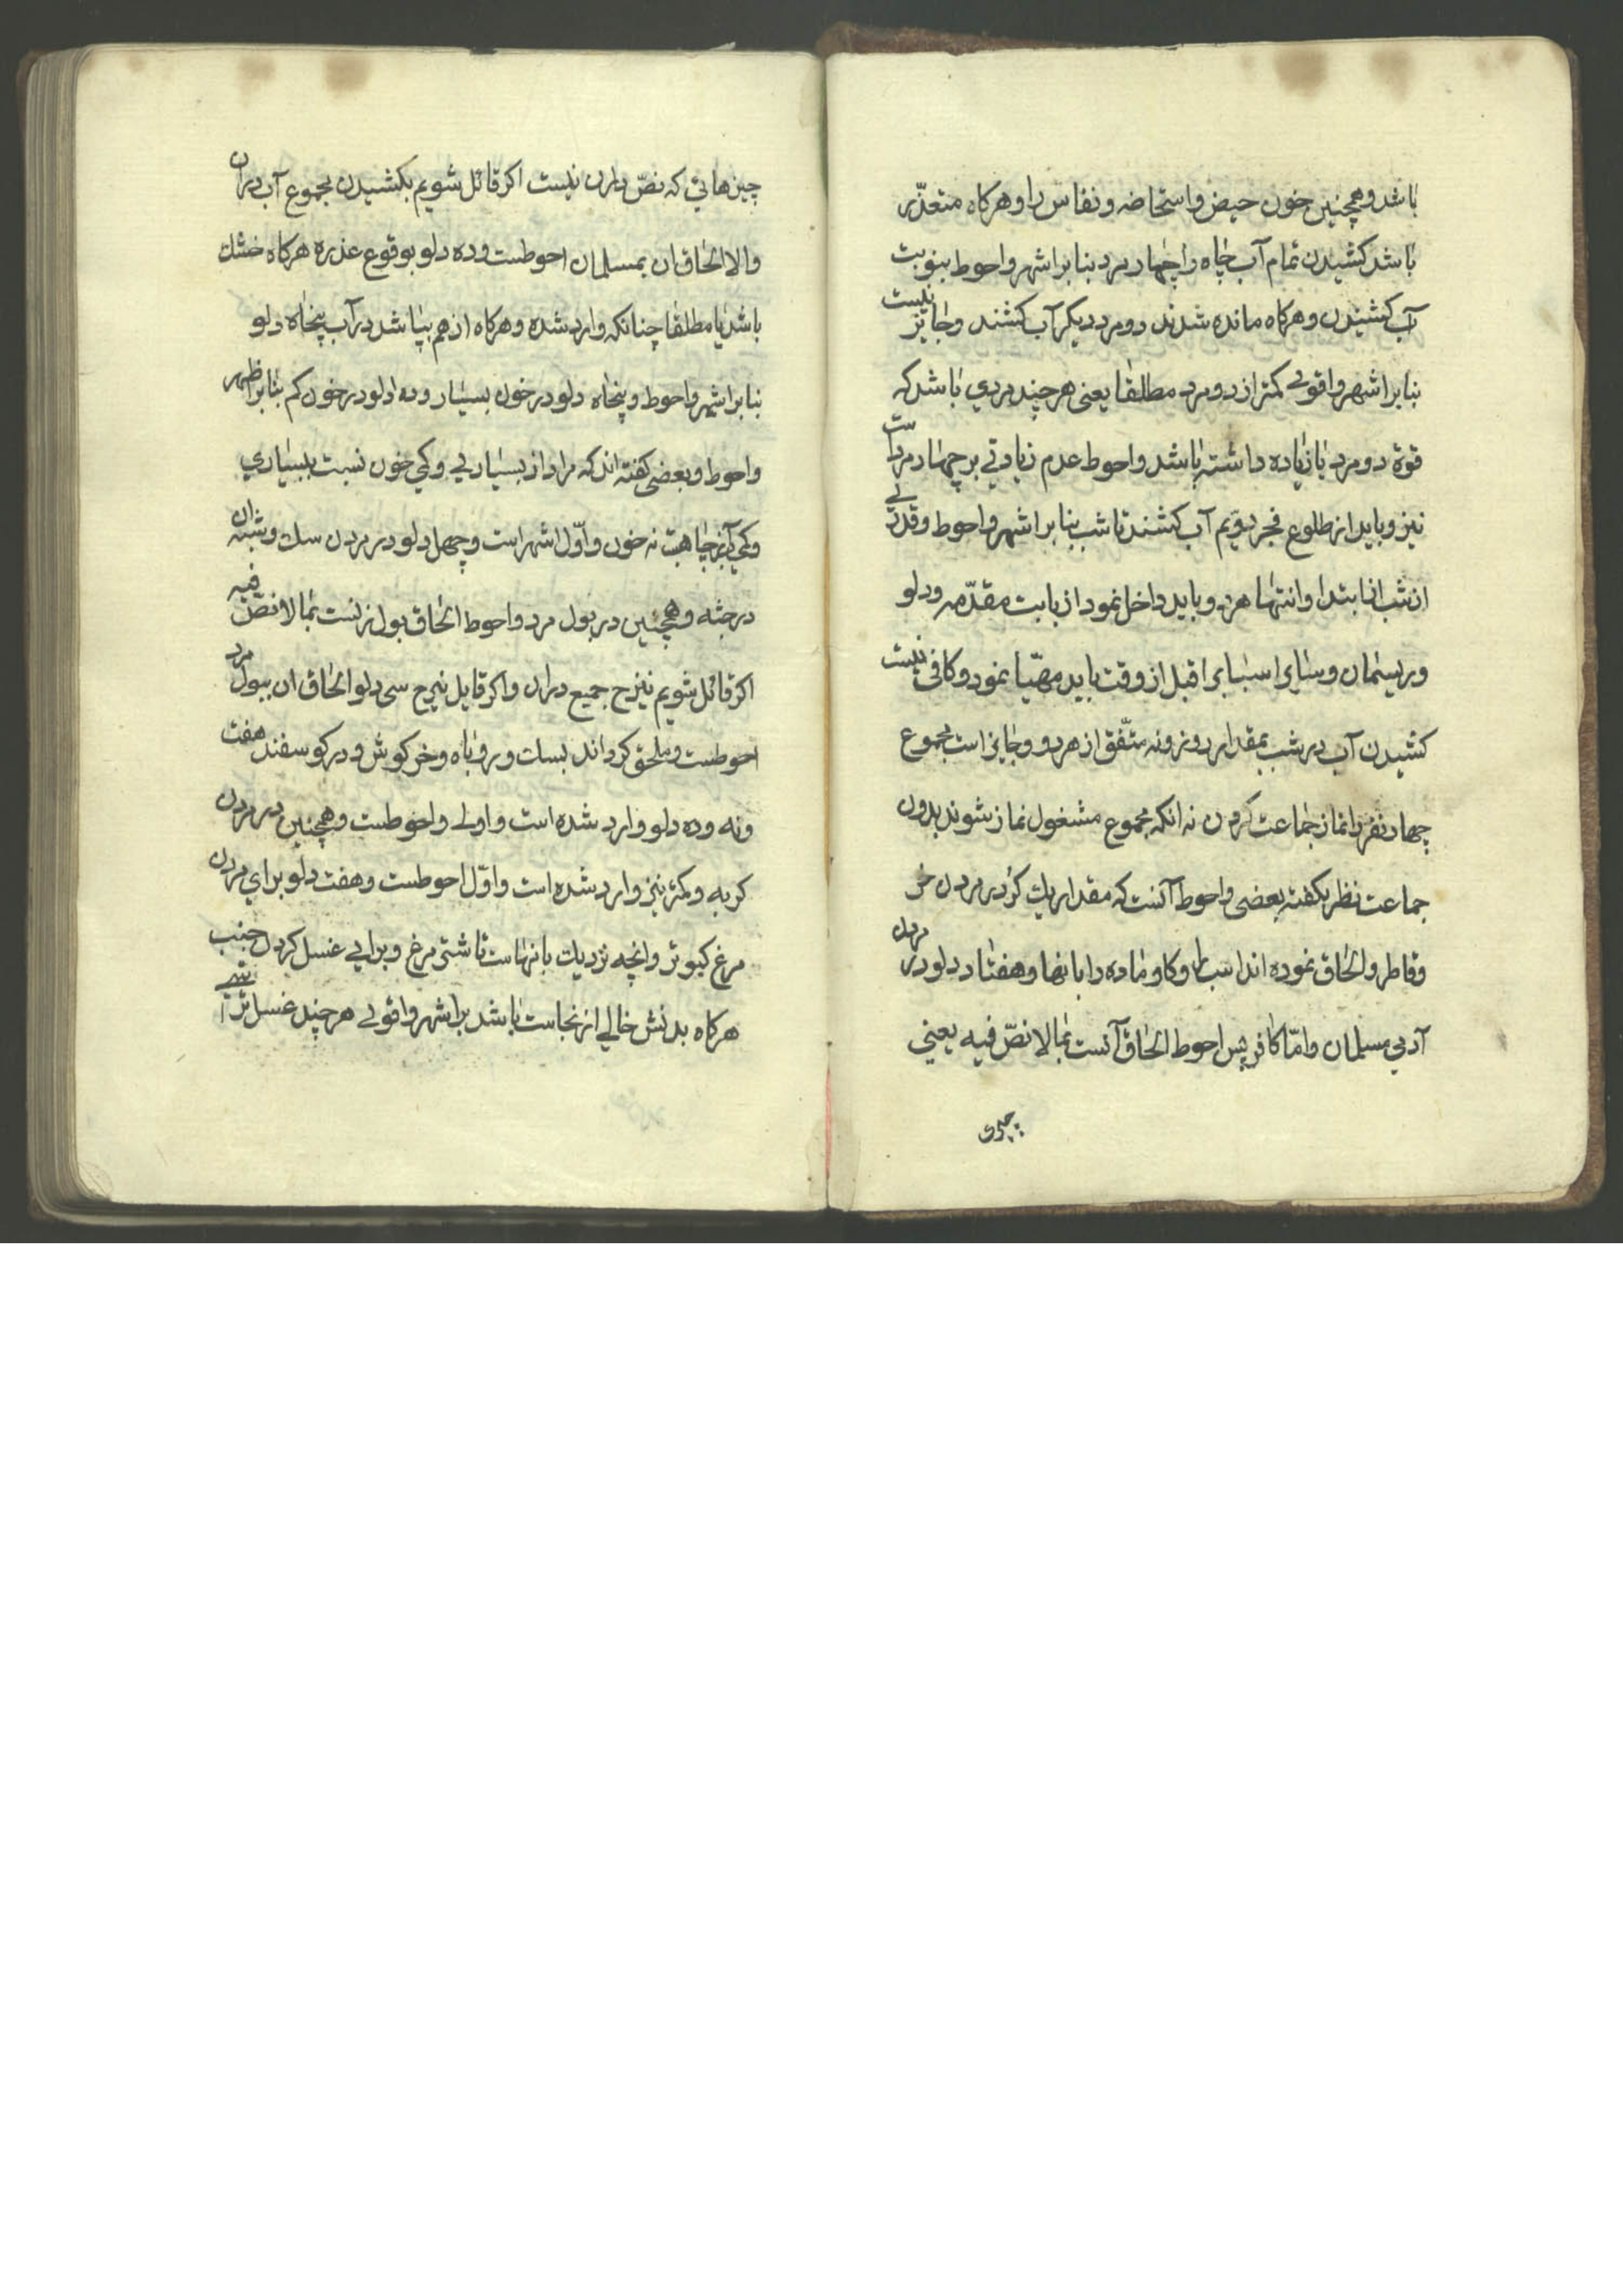 باشد وهمچنین خون حیض واستحاضه ونفاس را وهرکاه متعذّر
باشد کشیدن تمام آب چاه را چهار مرد بنابر اشهر واحوط بنوبت
آب کشیدن وهرکاه مانده شدند دو مرد دیکر آب کشند وجایز نیست
بنابر اشهر واقوی کمتر از دو مرد مطلقا یعنی هر چند مردی باشد که
قوة دو مرد یا زیاده داشته باشد واحوط عدم زیادتی بر چهار مرد است
نیز وباید از طلوع فجر دویم آب کشند تا شب بنابر اشهر واحوط وقدری
از شب از ابتدا وانتها هر دو باید داخل نمود از بابت مقدّمه ودلو
وریسمان وسایر اسباب را قبل از وقت باید مهیّا نمود وکافی نیست
کشیدن آب در شب بمقدار روز ونه متّفق از هر دو وجایز است مجموع
چهار نفر را نماز جماعت کردن نه انکه مجموع مشغول نماز شوند بدون
جماعت نظر بکفته بعضی واحوط آنست که مقدار یك کر در مردن خر
وقاطر والحاق نموده اند اسب وکاو ماده را بانها وهفتاد دلو در مردن
آدمی مسلمان وامّا کافر پس احوط الحاق آنست بمالا نصّ فیه یعنی
چیزهائی که نصّ در ان نیست اکر قائل شویم بکشیدن مجموع آب در ان
والا الحاق ان بمسلمان احوطست وده دلو بوقوع عذره هرکاه خشك
باشد یا مطلقا چنانکه وارد شده وهرکاه از هم بپاشد در آب پنجاه دلو
بنابر اشهر واحوط وپنجاه دلو در خون بسیار وده دلو در خون کم بنابر اظهر
واحوط وبعضی کفته اند که مراد از بسیاری وکمی خون نسبت ببسیاری
وکمی آب چاهست نه خون واوّل اشهر است وچهل دلو در مردن سك وشبه ان
در جثه وهمچنین در بول مرد واحوط الحاق بول زنست بمالا نصّ فیه
اکر قائل شویم بنزح جمیع در ان واکر قایل بنزح سی دلو الحاق ان ببول مرد
احوطست وملحق کرده اند بسك وروباه وخرکوش ودر کوسفند هفت
ونه وده دلو وارد شده است واولی واحوطست وهمچنین در مردن
کربه وکمتر نیز وارد شده است واوّل احوطست وهفت دلو برای مردن
مرغ کبوتر وانچه نزدیك بانهاست تا شتر مرغ وبرای غسل کردن جنب
هرکاه بدنش خالی از نجاست باشد بر اشهر واقوی هر چند غسل